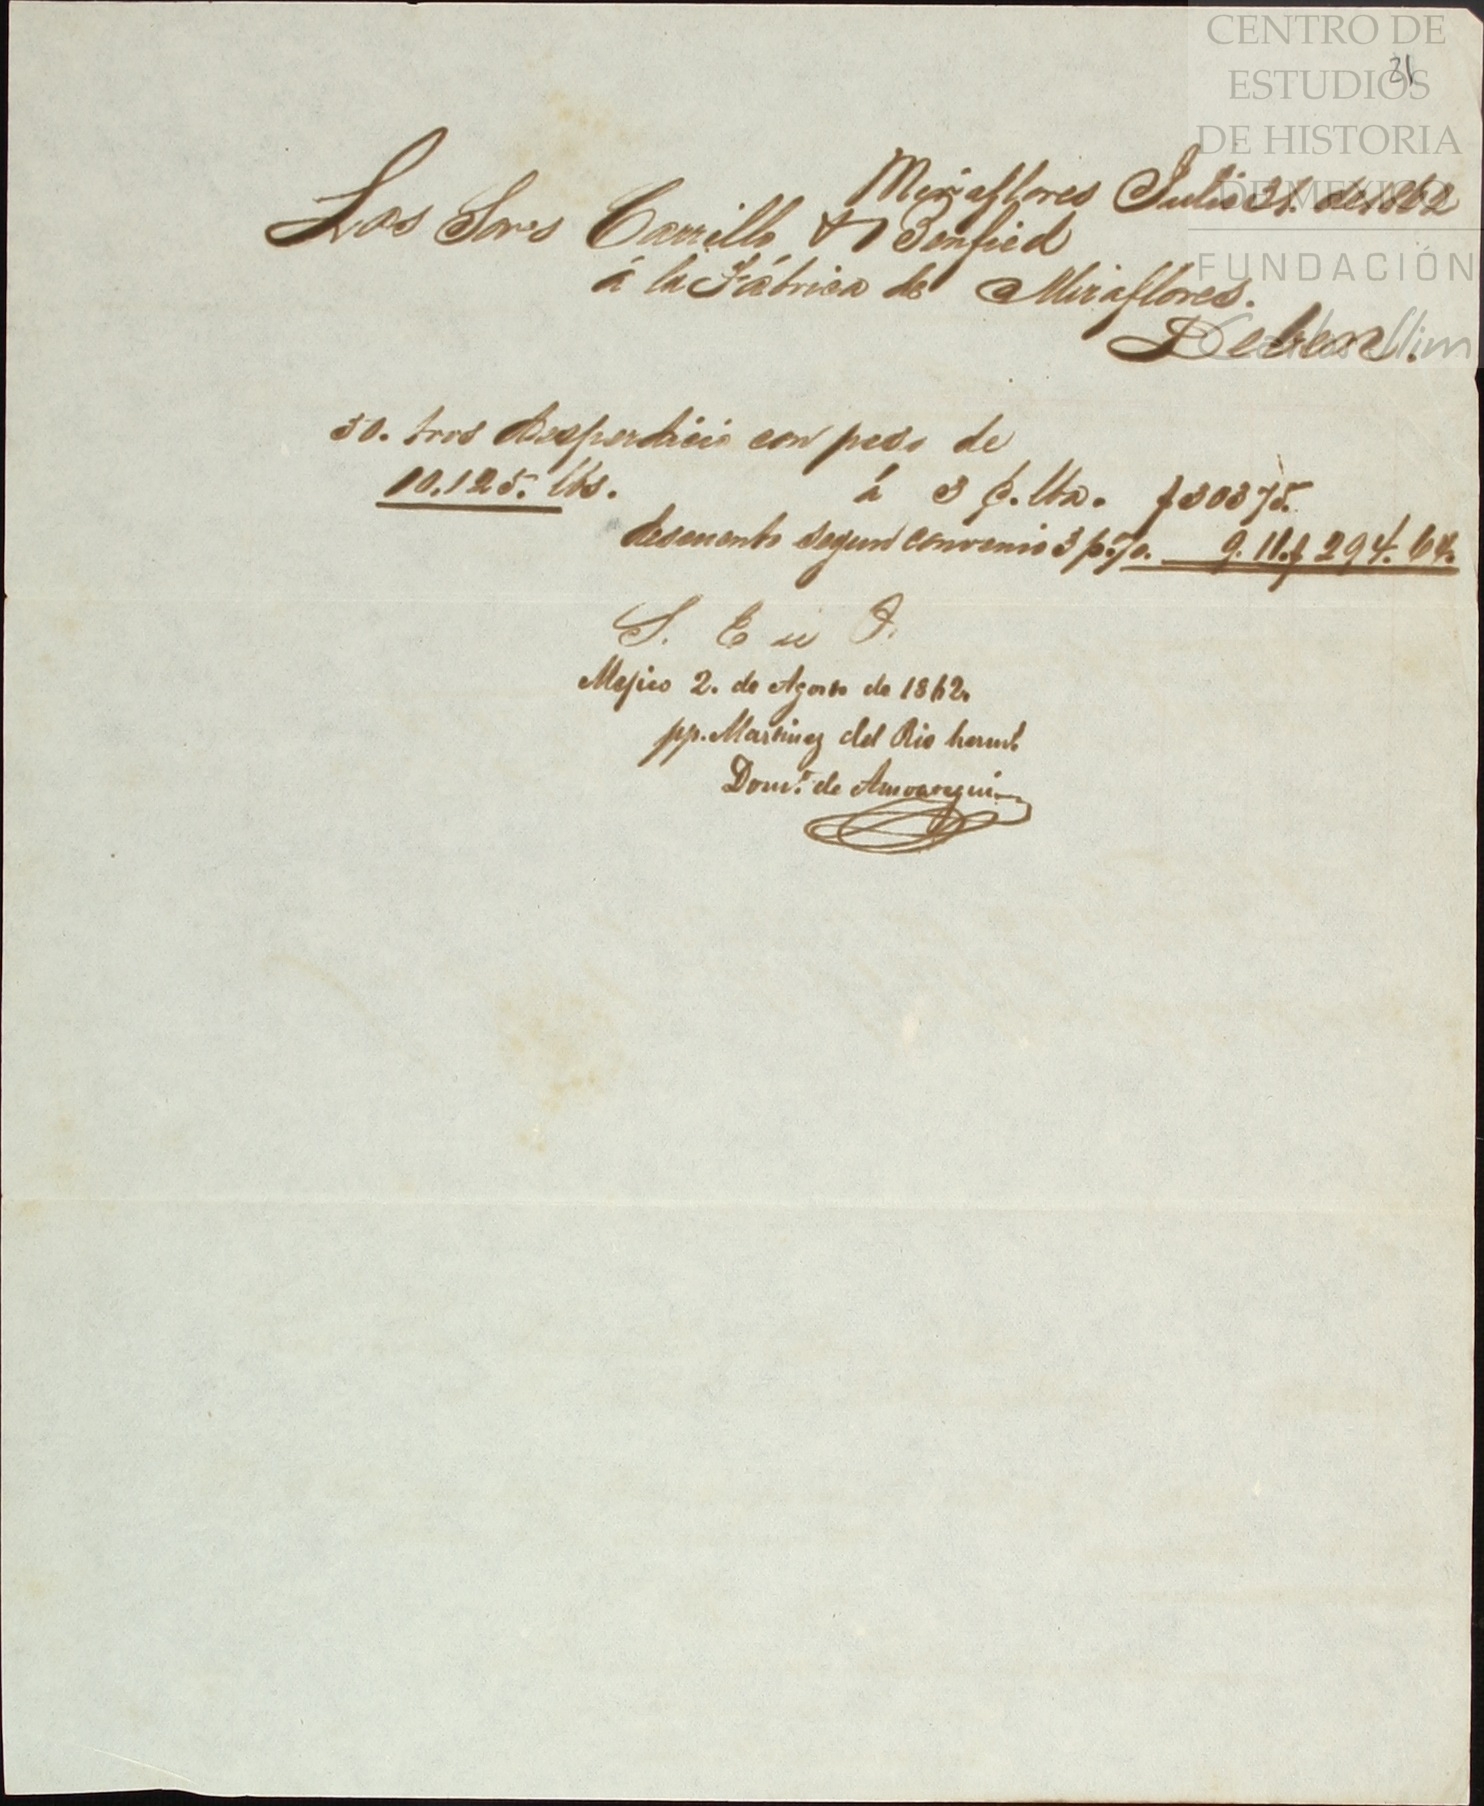 CENTRO DE
ESTUDIOS
DE HISTORIA
DE MEXICO
FUNDACIÓN
Carlos Slim
31
Miraflores Julio 31. de 1862
Los Sores Carrillo & Bonfied
á la Fábrica de Miraflores.
Deben.
50. tros desperdicio con peso de
10.125. lbs. á 3 ¢. lba. $ 303 75.
descuento segun convenio 3 p.%. 9. 11. $ 294. 64.
S. E. ú O.
Mejico 2. de Agosto de 1862.
pp. Martinez del Rio herms
Domo. de